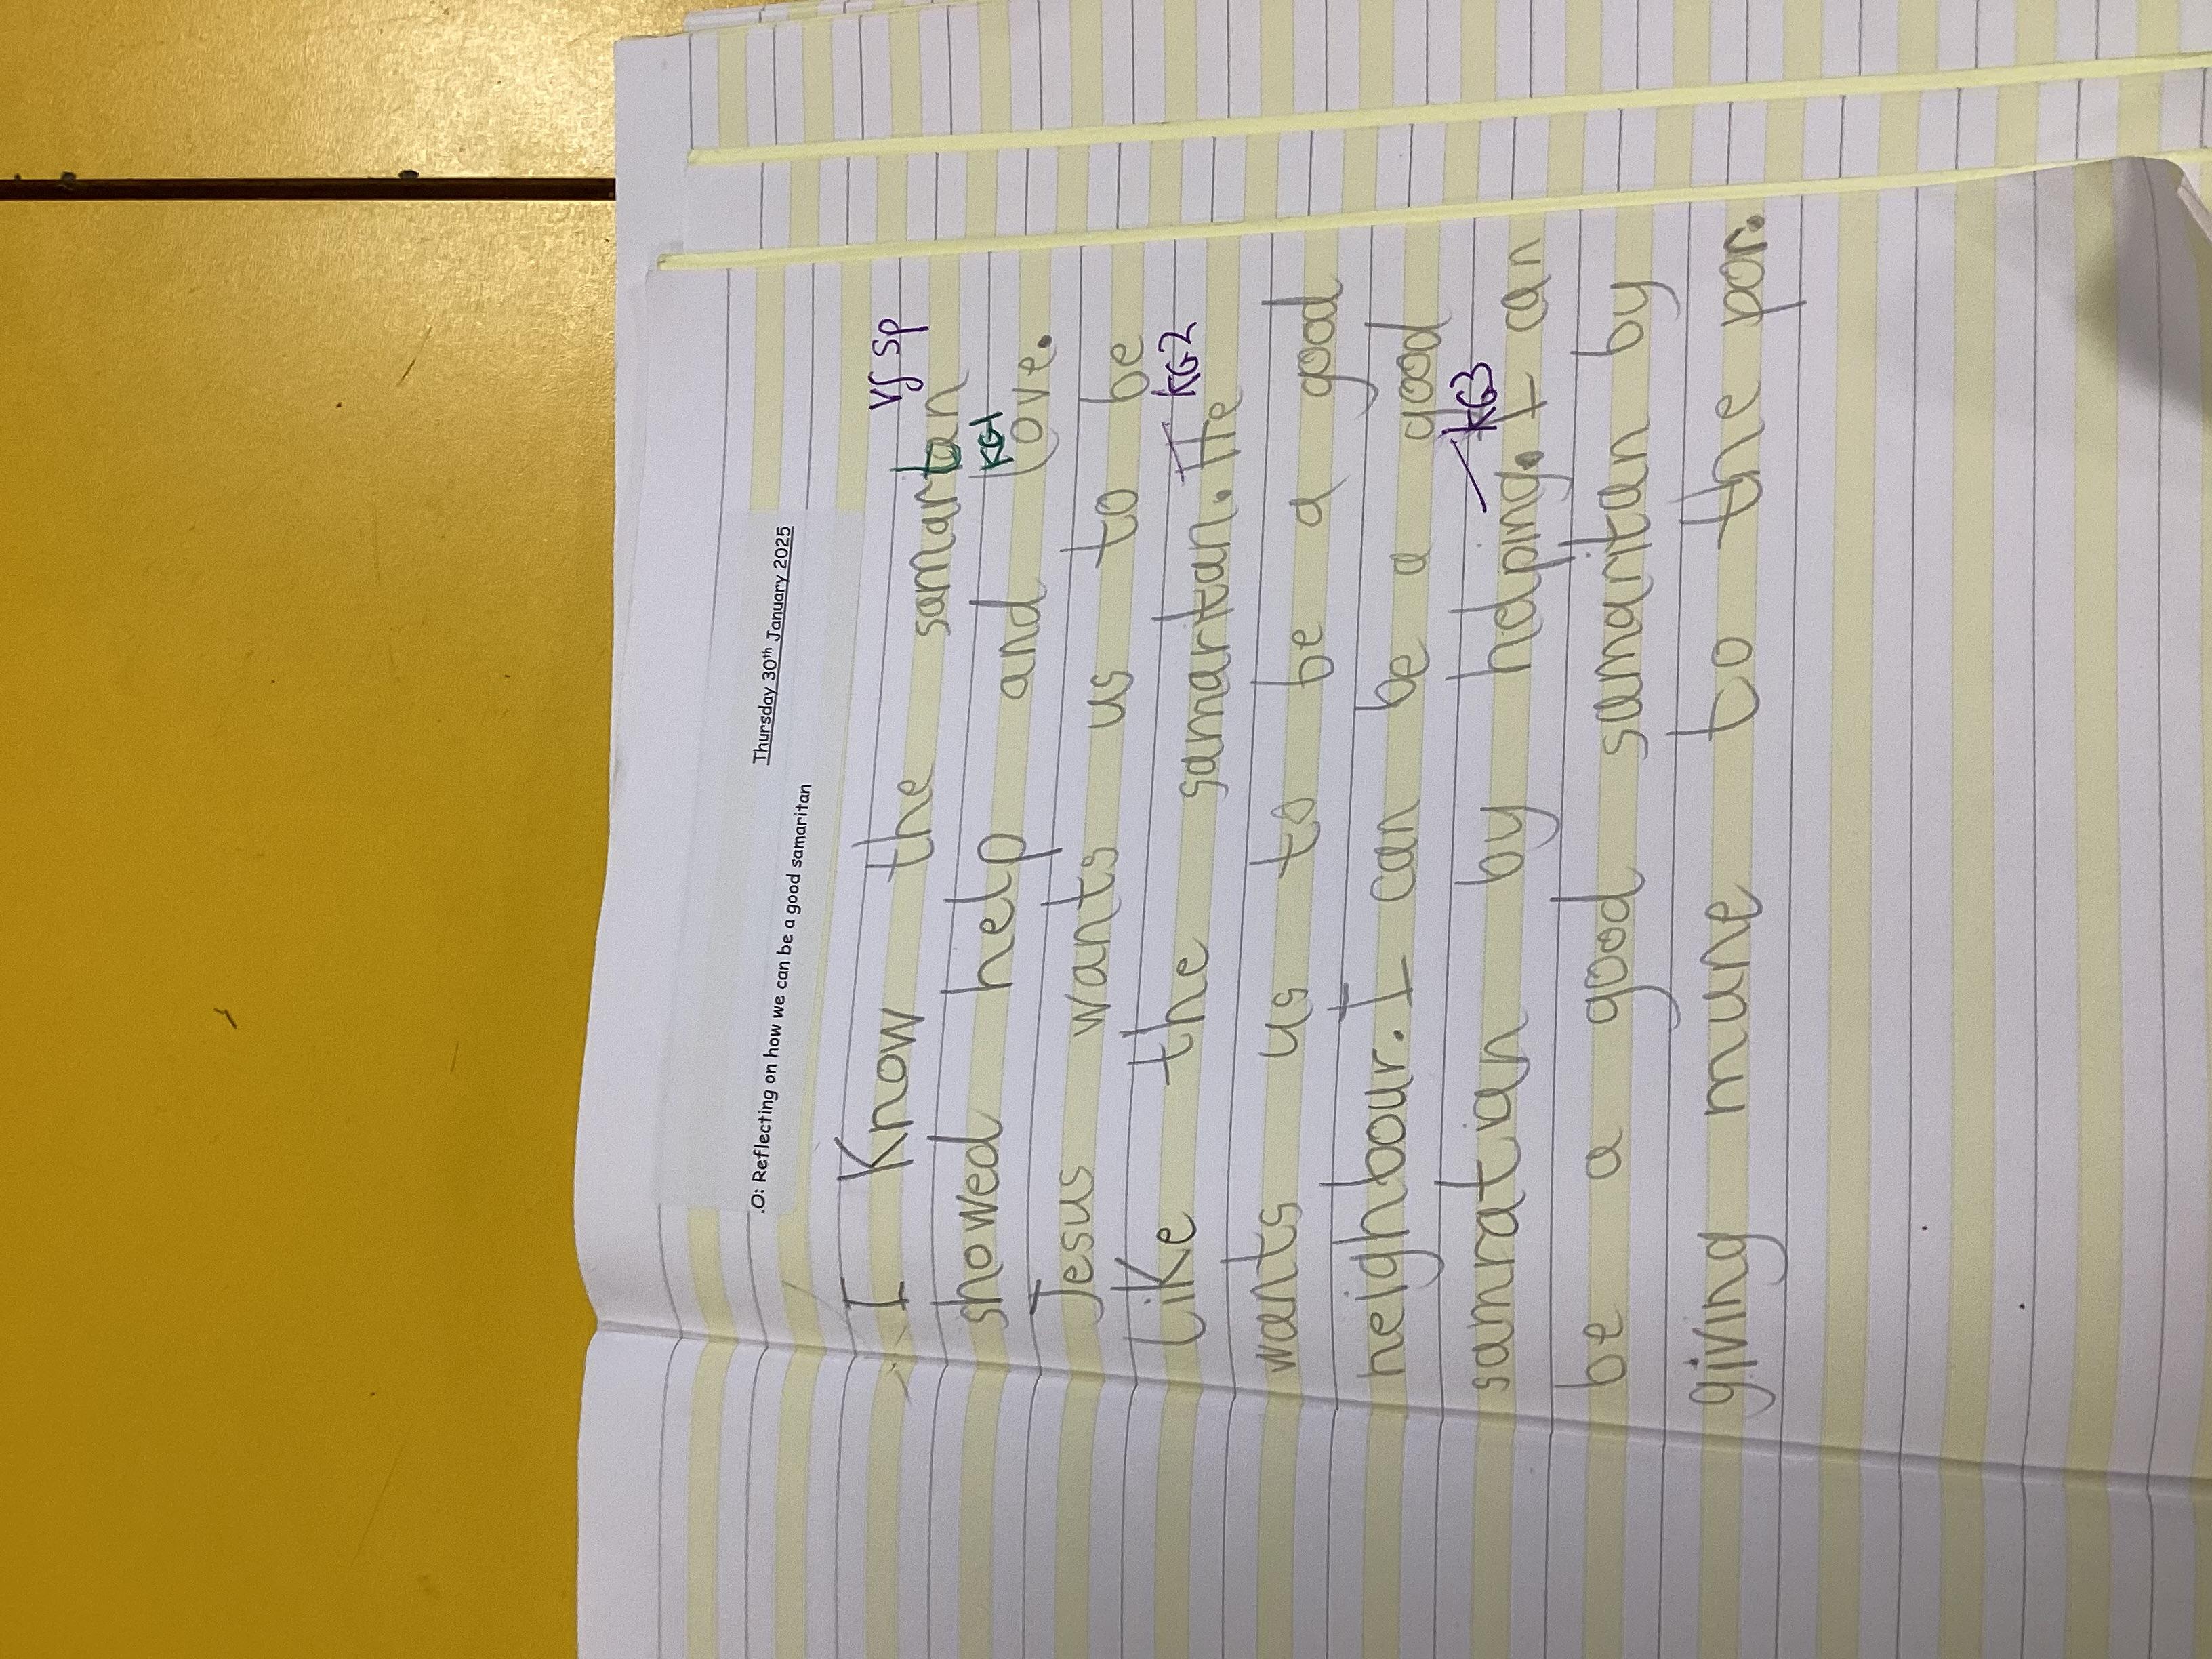 Thursday 30th January 2025
.O: Reflecting on how we can be a good samaritan
Vf sp
I Know the samartan
KG1
showed help and love.
Jesus wants us to be
KG2
like the samaritan. He
wants us to be a good
neighbour. I can be a good
KG3
samratian by helping. I can
be a good samaritan by
giving mune to the por.